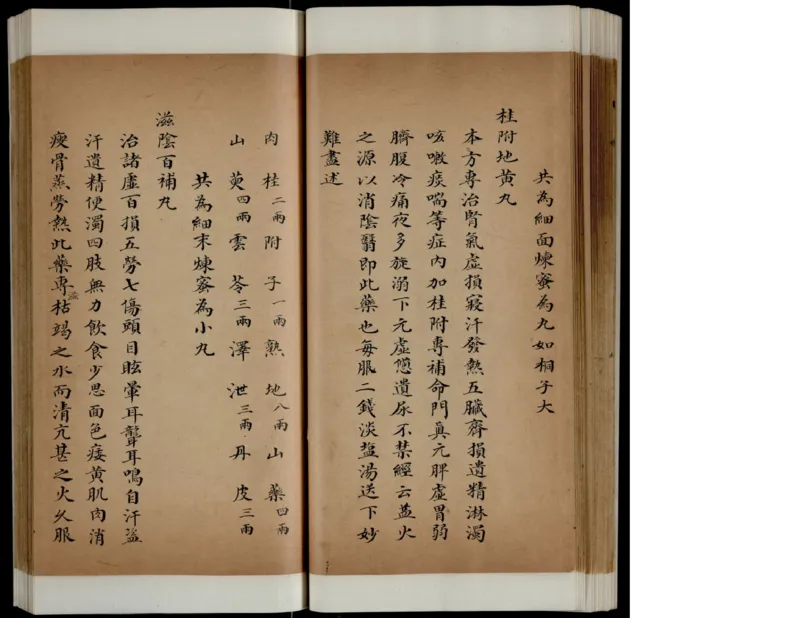 共為細面煉蜜為丸如桐子大
桂附地黃丸
本方專治腎氣虛損寢汗發熱五臟齊損遺精淋濁
咳嗽痰喘等症內加桂附專補命門真元脾虛胃弱
臍腹冷痛夜多旋溺下元虛憊遺尿不禁經云益火
之源以消陰翳即此藥也每服二錢淡盐湯送下妙
難盡述
肉桂二兩附子一兩熟地八兩山藥四兩
山萸四兩雲苓三兩澤泄三兩丹皮三兩
共為細末煉蜜為小丸
滋陰百補丸
治諸虛百損五勞七傷頭目眩暈耳聾耳鳴自汗盜
汗遺精便濁四肢無力飲食少思面色痿黃肌肉消
瘦骨蒸勞熱此藥專滋枯竭之水而清亢甚之火久服